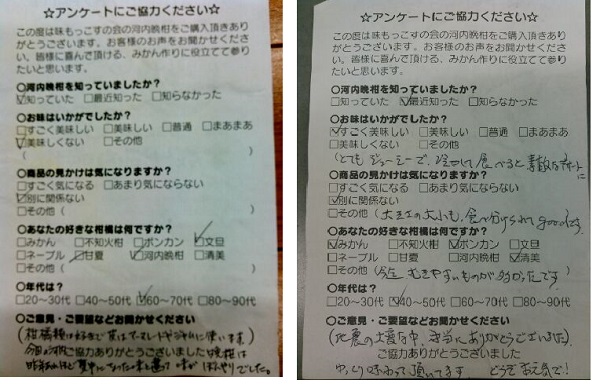 ☆アンケートにご協力ください☆
この度は味もっこすの会の河内晩柑をご購入頂きあり
がとうございます。お客様のお声をお聞かせくださ
い。皆様に喜んで頂ける、みかん作りに役立てて参り
たいと思います。
○河内晩柑を知っていましたか?
☑知っていた □最近知った □知らなかった
○お味はいかがでしたか?
□すごく美味しい □美味しい □普通 □まあまあ
☑美味しくない □その他
( )
○商品の見かけは気になりますか?
□すごく気になる □あまり気にならない
☑別に関係ない
□その他( )
○あなたの好きな柑橘は何ですか?
□みかん □不知火柑 □ポンカン ☑文旦
□ネーブル ☑甘夏 ☑河内晩柑 □清美
□その他( )
○年代は?
□20~30代 □40~50代 ☑60~70代 □80~90代
○ご意見・ご要望などお聞かせください
(柑橘類は好きで 皮はマーマレードやジャムに使います)
ご協力ありがとうございました
☆アンケートにご協力ください☆
この度は味もっこすの会の河内晩柑をご購入頂きあり
がとうございます。お客様のお声をお聞かせくださ
い。皆様に喜んで頂ける、みかん作りに役立てて参り
たいと思います。
○河内晩柑を知っていましたか?
□知っていた ☑最近知った □知らなかった
○お味はいかがでしたか?
☑すごく美味しい □美味しい □普通 □まあまあ
□美味しくない □その他
(とてもジューシーで、冷やして食べると素敵なデザートに
○商品の見かけは気になりますか?
□すごく気になる □あまり気にならない
☑別に関係ない
□その他(大きさの大小も、食べ分けられてgoodです。
○あなたの好きな柑橘は何ですか?
☑みかん □不知火柑 ☑ポンカン □文旦
□ネーブル □甘夏 □河内晩柑 ☑清美
□その他( むきやすいものが多かったです)
○年代は?
□20~30代 ☑40~50代 □60~70代 □80~90代
○ご意見・ご要望などお聞かせください
(地震の大変な中、本当にありがとうございました。)
ご協力ありがとうございました
ゆっくり味わって頂いてます どうぞお元気で!